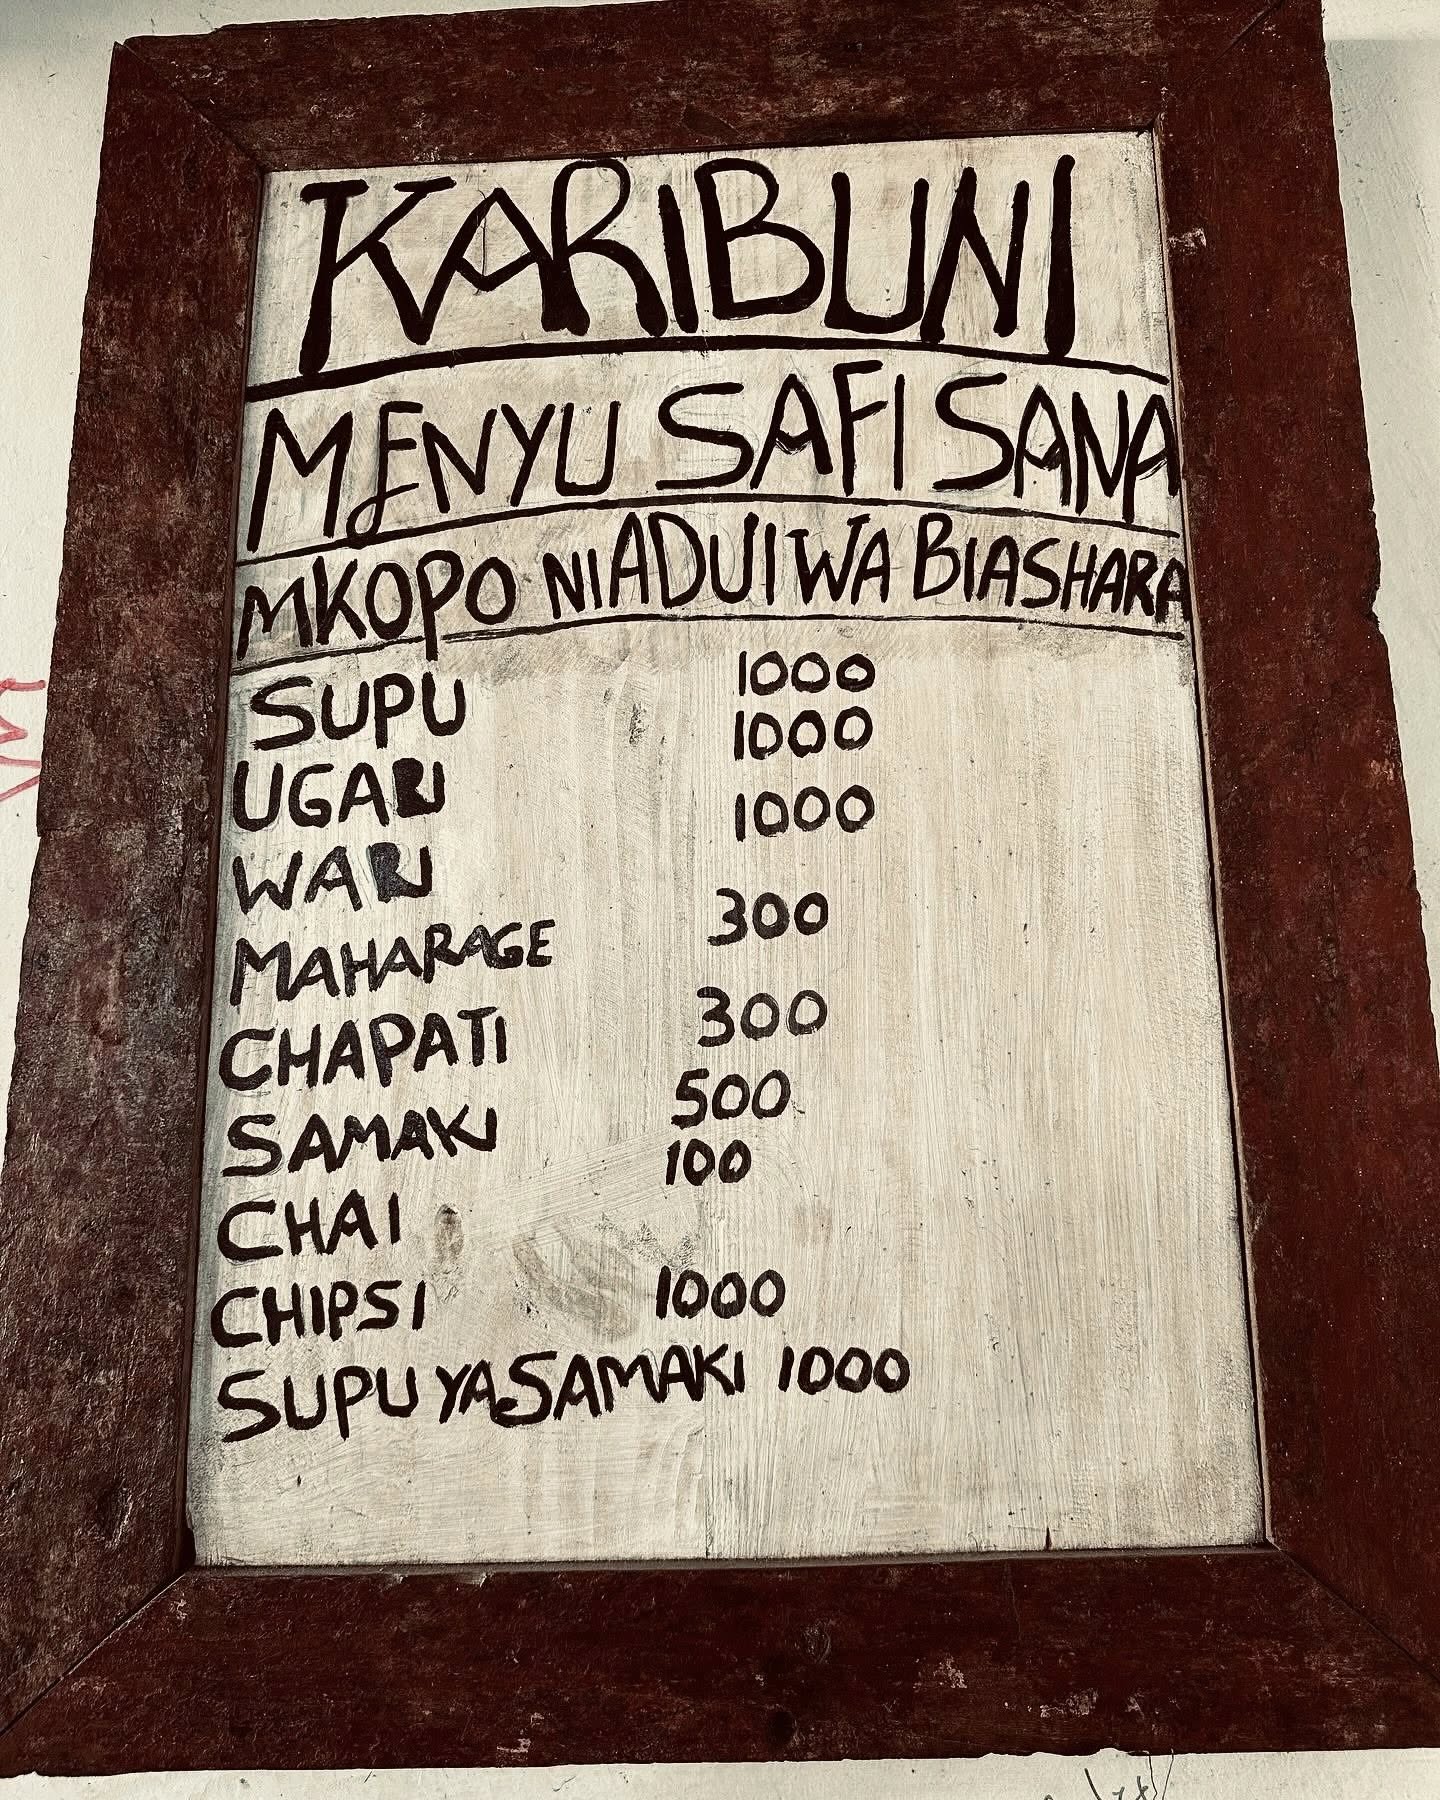 KARIBUNI
MENYU SAFI SANA
MKOPO NI ADUI WA BIASHARA
SUPU 1000
UGARI 1000
WARI 1000
MAHARAGE 300
CHAPATI 300
SAMAKI 500
CHAI 100
CHIPSI 1000
SUPU YA SAMAKI 1000